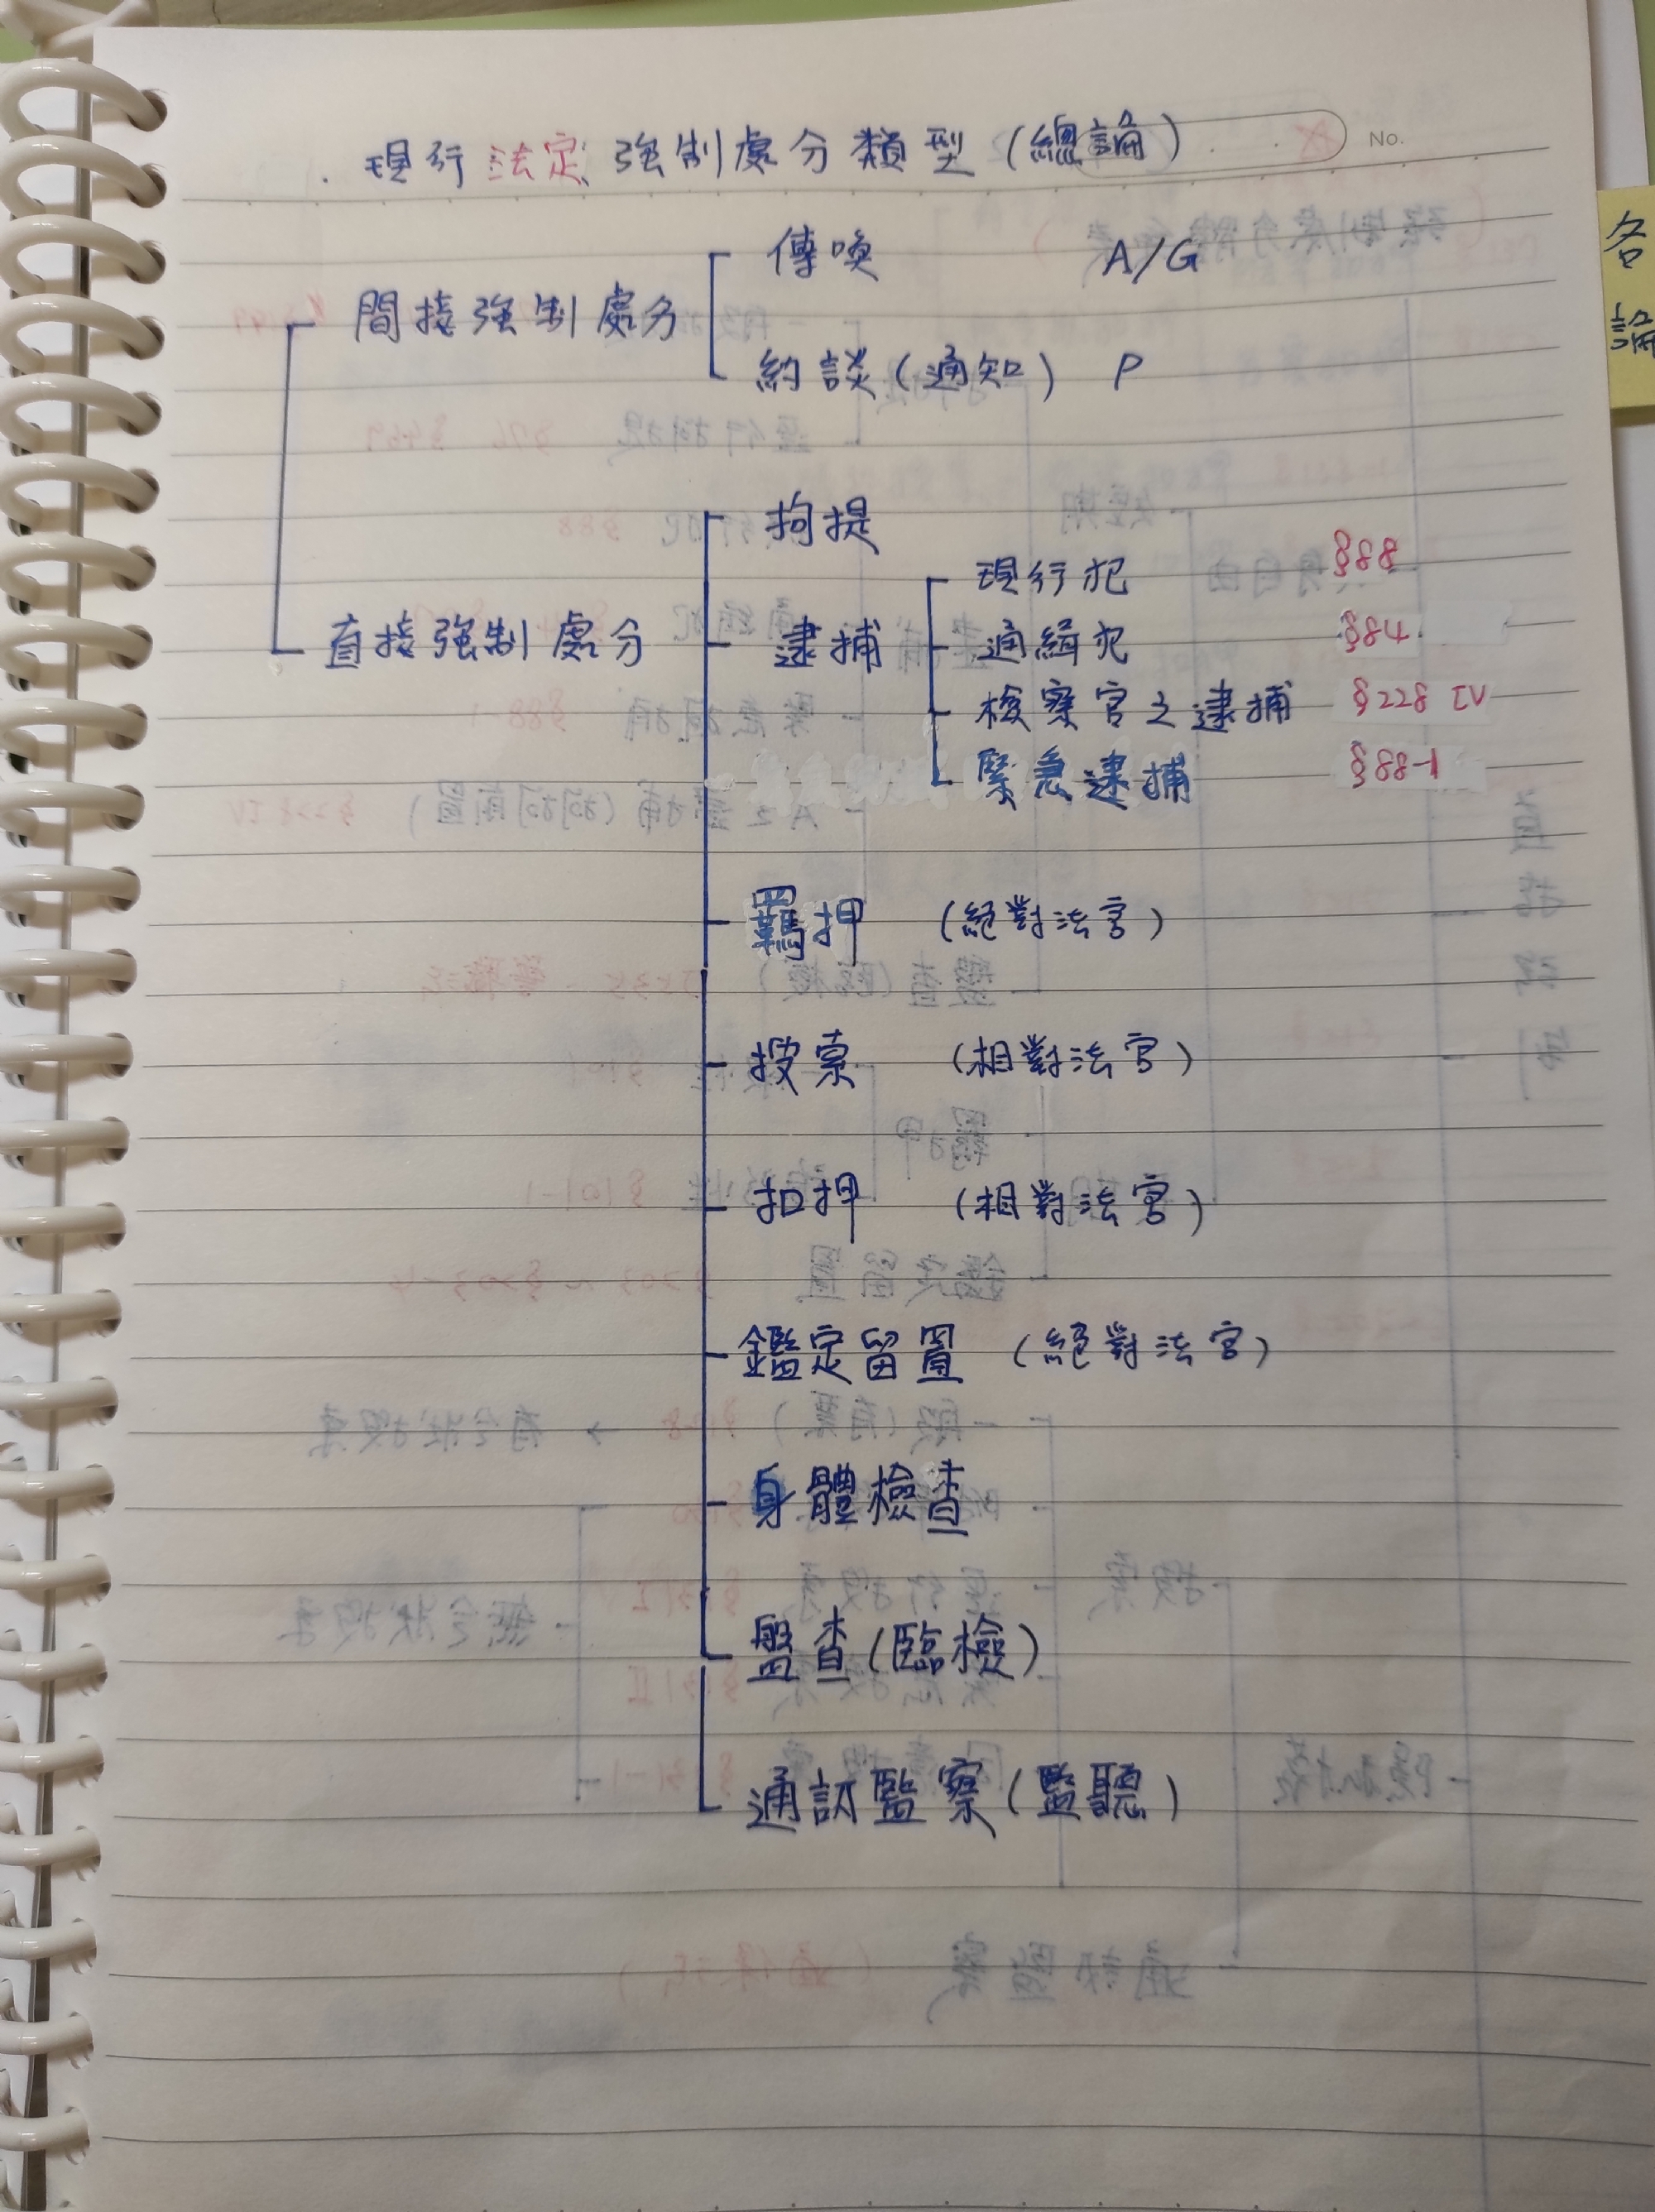 No.
現行法定強制處分類型(總論)
各論
間接強制處分
傳喚 A/G
約談(通知) P
直接強制處分
拘提
逮捕
現行犯 §88
通緝犯 §84
檢察官之逮捕 §228 IV
緊急逮捕 §88-1
羈押 (絕對法官)
搜索 (相對法官)
扣押 (相對法官)
鑑定留置 (絕對法官)
身體檢查
盤查(臨檢)
通訊監察(監聽)